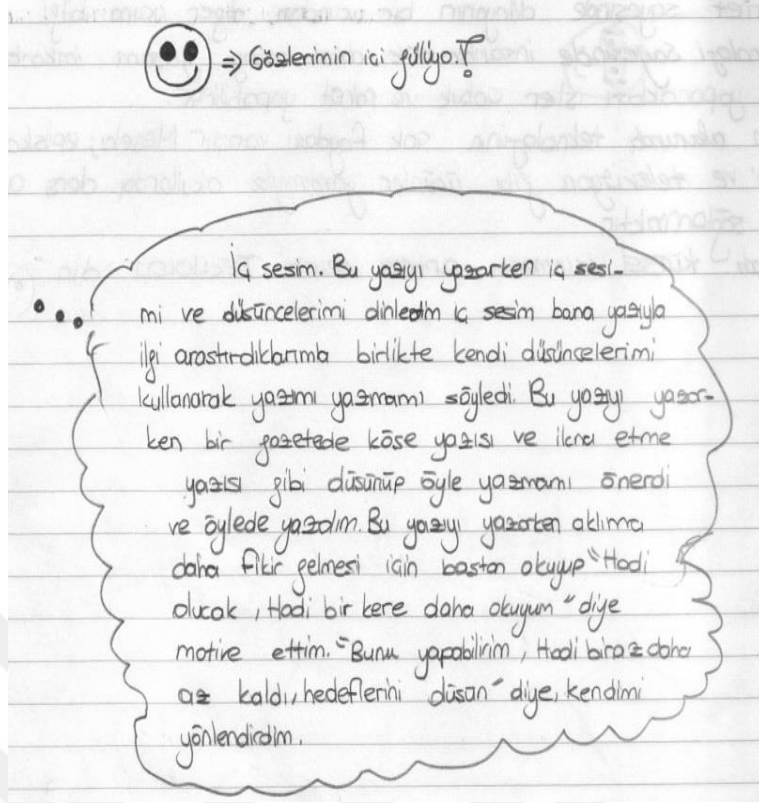 => Gözlerimin içi gülüyo.!
İç sesim. Bu yazıyı yazarken iç sesi-
mi ve düşüncelerimi dinledim iç sesim bana yazıyla
ilgi araştırdıklarımla birlikte kendi düşüncelerimi
kullanarak yazımı yazmamı söyledi. Bu yazıyı yazar-
ken bir gazetede köşe yazısı ve ikna etme
yazısı gibi düşünüp öyle yazmamı önerdi
ve öylede yazdım. Bu yazıyı yazarken aklıma
daha fikir gelmesi için baştan okuyup "Hadi
olucak, Hadi bir kere daha okuyum" diye
motive ettim. "Bunu yapabilirim, Hadi biraz daha
az kaldı, hedeflerini düşün" diye, kendimi
yönlendirdim.